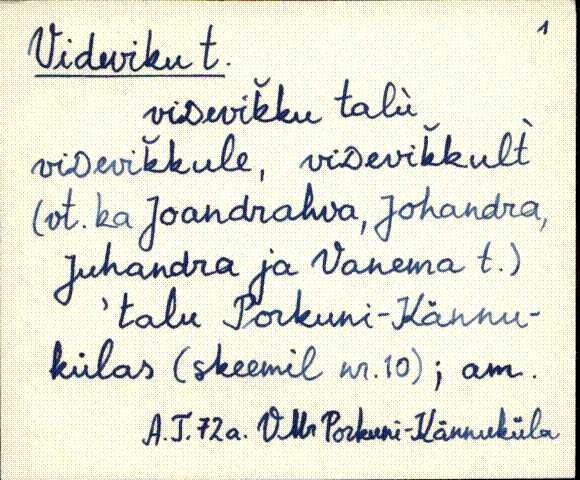 1
Videviku t.
viᴅevik̆ku talù
viᴅevik̆kule, viᴅevik̆kult̀
(vt. ka Joandrahva, Johandra,
Juhandra ja Vanema t.)
'talu Porkuni-Kännu-
külas (skeemil nr. 10); am.
A.T. 72a. VMr Porkuni-Kännuküla